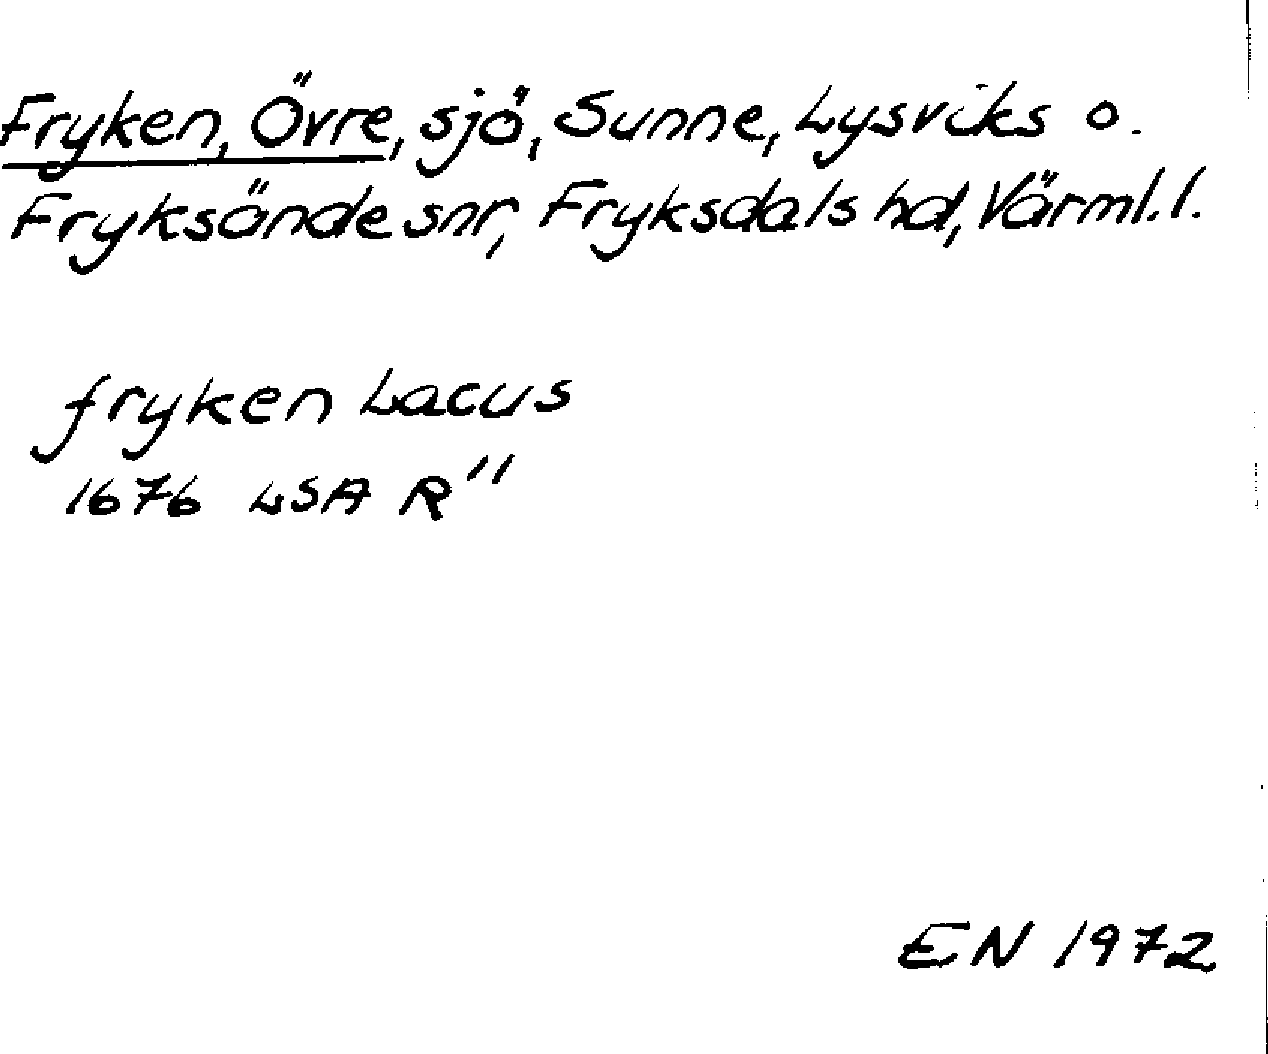 Fryken, Övre, sjö, Sunne, Lysviks o.
Fryksände snr, Fryksdals hd, Värml. l.
fryken Lacus
1676 LSA R''
EN 1972